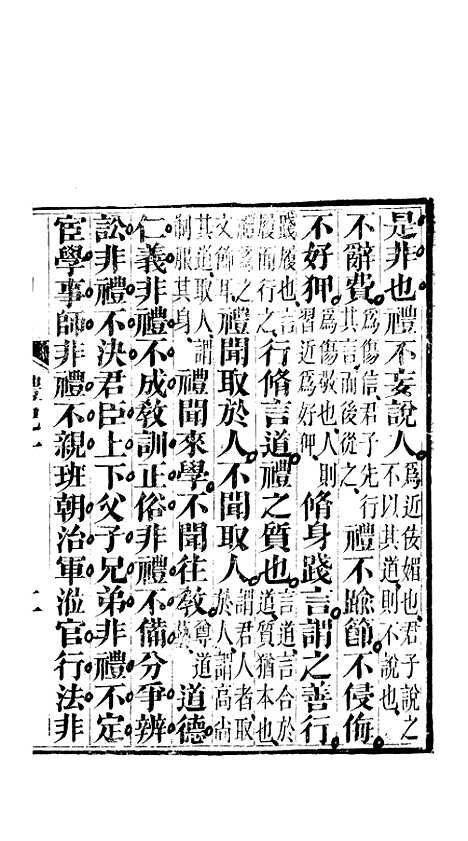 是非也禮不妄說人爲近佞媚也君子說之不以其道則不說也
不辭費爲傷信君子先行其言而後從之禮不踰節不侵侮
不好狎爲傷敬也人則習近爲好狎脩身踐言謂之善行
踐履也言履而行之行脩言道禮之質也言道言合於道質猶本也
禮爲之文飾耳禮聞取於人不聞取人謂君人者取於人謂高尚
其道取人謂制服其身禮聞來學不聞往教尊道藝道德
仁義非禮不成教訓正俗非禮不備分爭辨
訟非禮不決君臣上下父子兄弟非禮不定
宦學事師非禮不親班朝治軍涖官行法非
禮記一 二